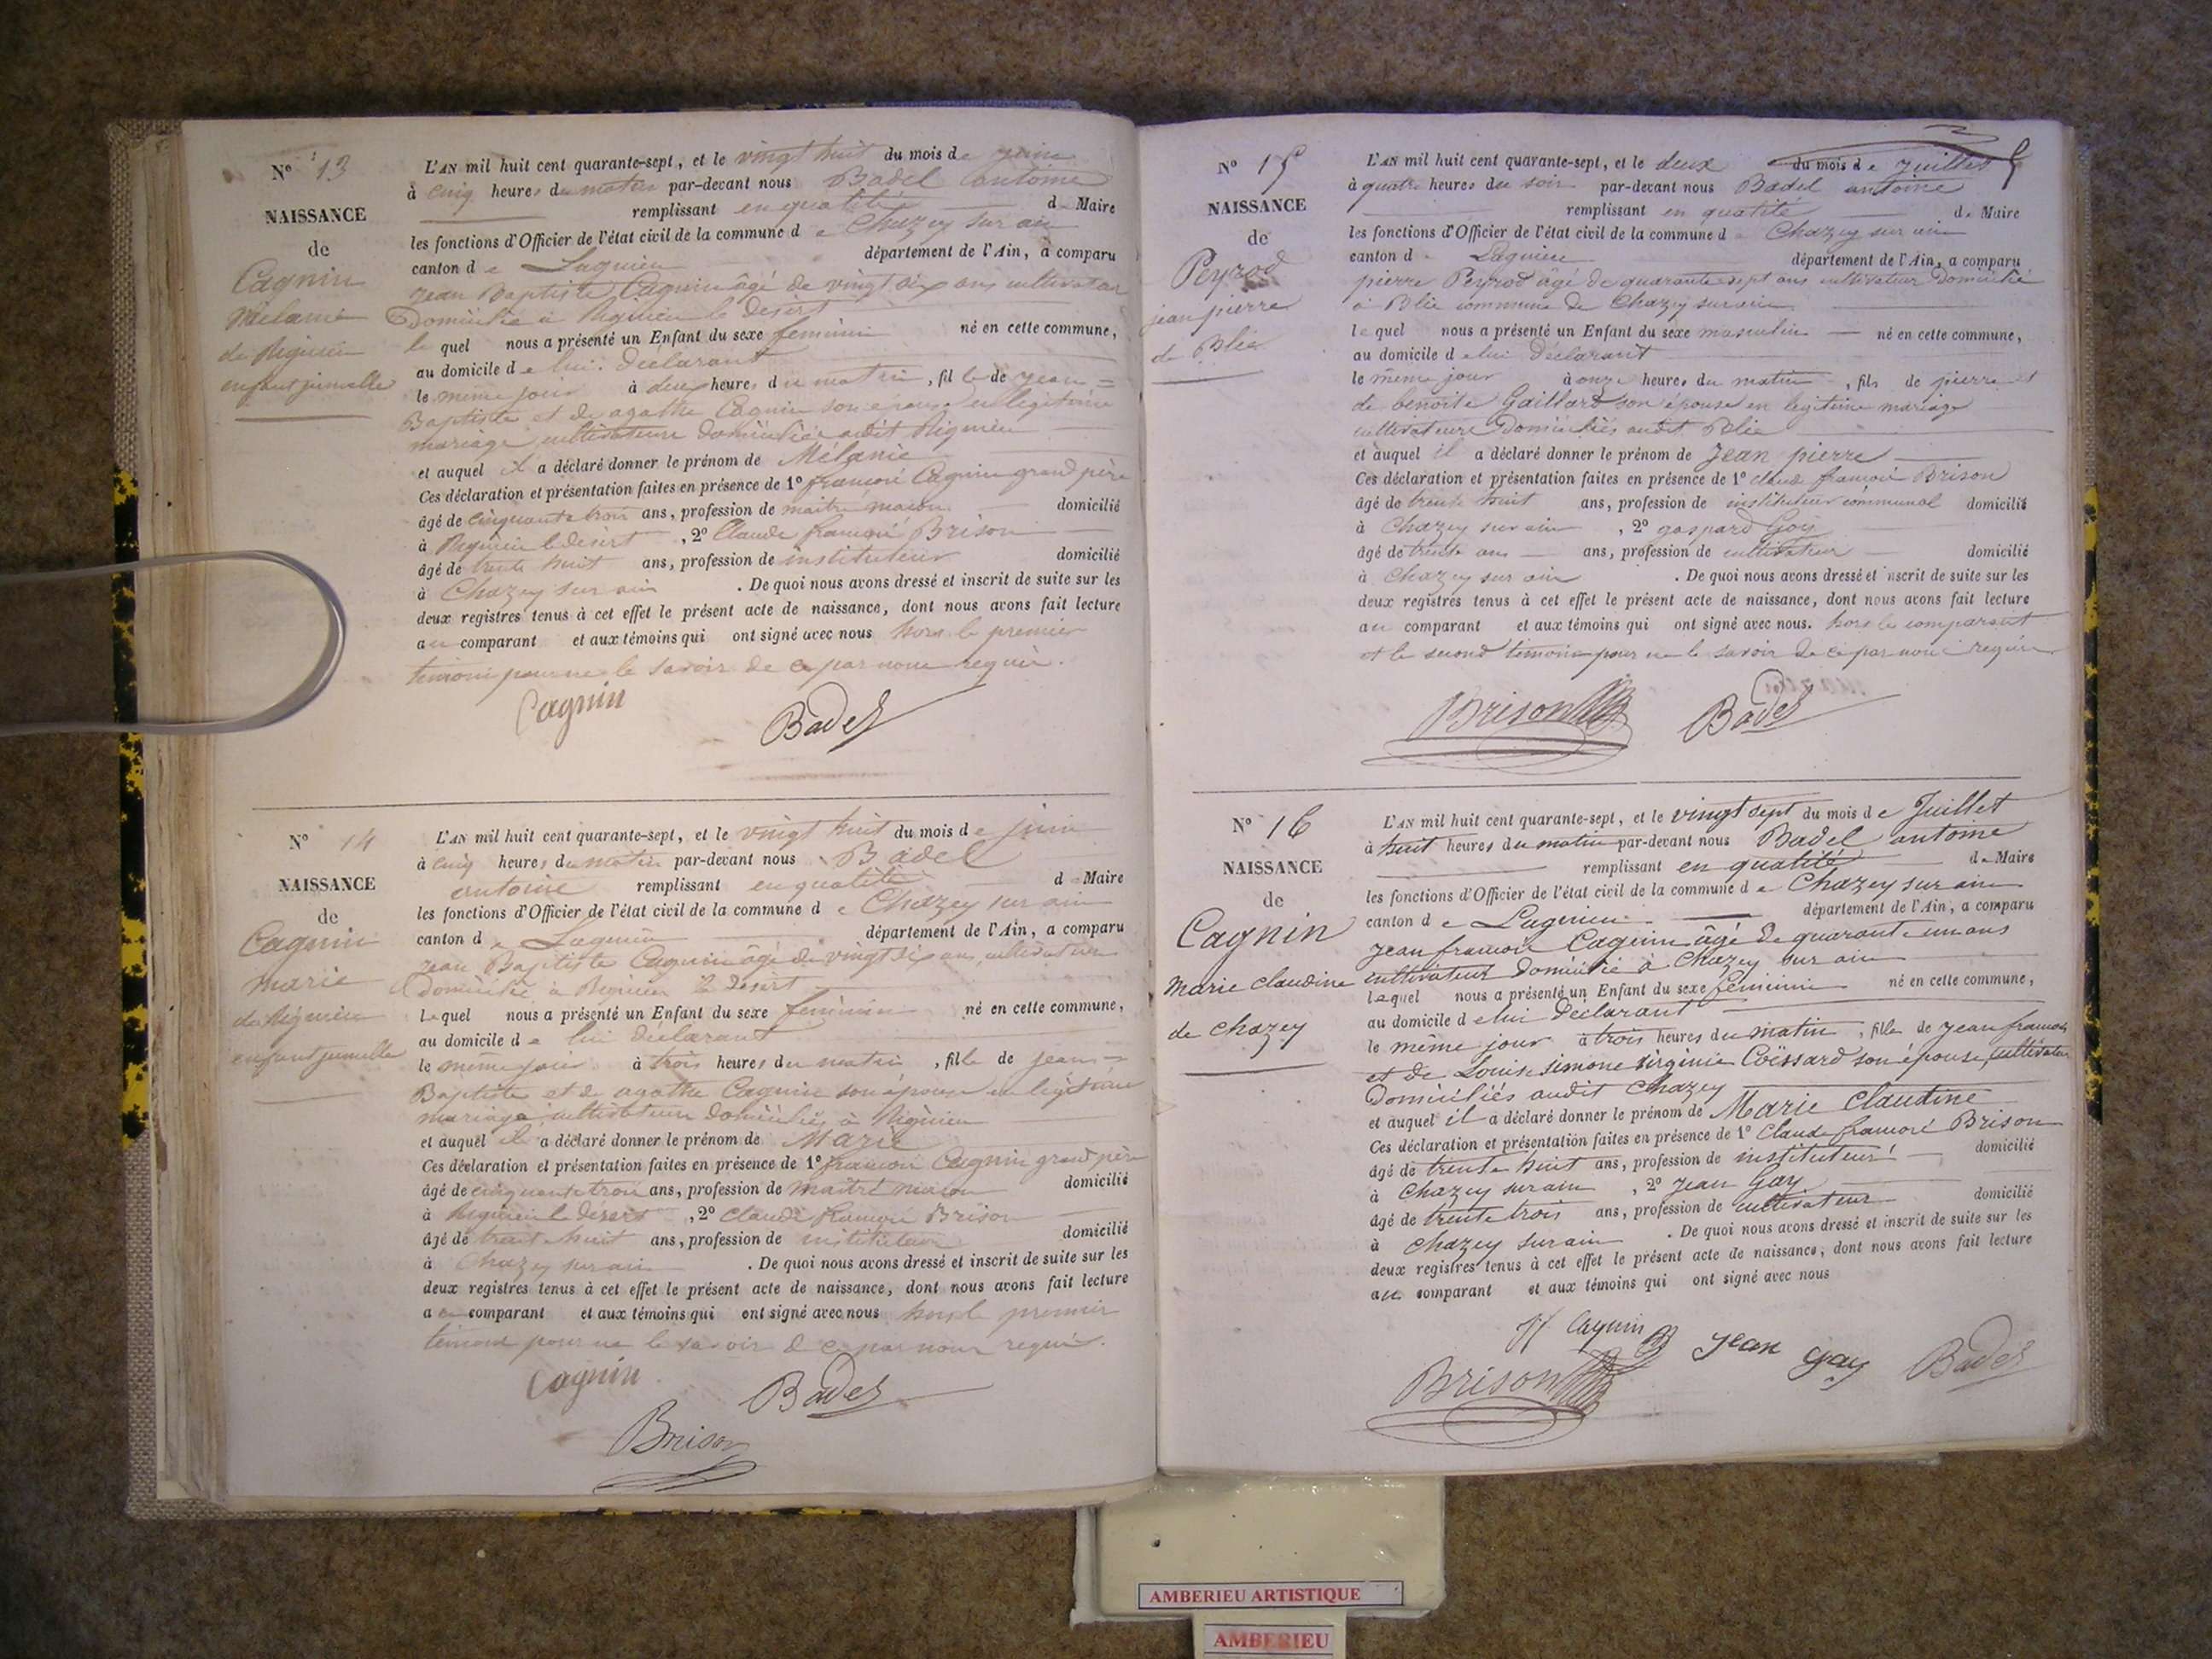 N° 13
NAISSANCE
de
Cagnin
Mélanie
de Rignieu
enfant jumelle
L'AN mil huit cent quarante-sept, et le vingt huit du mois de juin
à cinq heures du matin par-devant nous Badel antoine
remplissant en qualité de Maire
les fonctions d'Officier de l'état civil de la commune de Chazey sur ain
canton de Lagnieu département de l'Ain, a comparu
jean Baptiste Cagnin âgé de vingt six ans cultivateur
Domicilié à Rignieu le desert
le quel nous a présenté un Enfant du sexe feminin né en cette commune,
au domicile de lui déclarant
le même jour à deux heures du matin, fille de jean =
Baptiste et de agathe Cagnin son épouse en légitime
mariage cultivateurs domiciliés audit Rignieu
et auquel il a déclaré donner le prénom de Mélanie
Ces déclaration et présentation faites en présence de 1° françois Cagnin grand père
âgé de cinquante trois ans, profession de maitre maçon domicilié
à Rignieu le desert, 2° Claude françois Brison
âgé de trente huit ans, profession de instituteur domicilié
à Chazey sur ain. De quoi nous avons dressé et inscrit de suite sur les
deux registres tenus à cet effet le présent acte de naissance, dont nous avons fait lecture
au comparant et aux témoins qui ont signé avec nous hors le premier
témoin pour ne le savoir de ce par nous requis.
Cagnin
Badel
N° 14
NAISSANCE
de
Cagnin
marie
de Rignieu
enfant jumelle
L'AN mil huit cent quarante-sept, et le vingt huit du mois de juin
à cinq heures du matin par-devant nous Badel
antoine remplissant en qualité de Maire
les fonctions d'Officier de l'état civil de la commune de Chazey sur ain
canton de Lagnieu département de l'Ain, a comparu
jean Baptiste Cagnin âgé de vingt six ans, cultivateur
domicilié à Rignieu le desert
Lequel nous a présenté un Enfant du sexe féminin né en cette commune,
au domicile de lui déclarant
le même jour à trois heures du matin, fille de jean =
Baptiste et de agathe Cagnin son épouse en légitime
mariage, cultivateurs domiciliés à Rignieu
et auquel il a déclaré donner le prénom de Marie
Ces déclaration et présentation faites en présence de 1° françois Cagnin grand père
âgé de cinquante trois ans, profession de maitre maçon domicilié
à Rignieu le desert, 2° Claude françois Brison
âgé de trente huit ans, profession de instituteur domicilié
à Chazey sur ain. De quoi nous avons dressé et inscrit de suite sur les
deux registres tenus à cet effet le présent acte de naissance, dont nous avons fait lecture
au comparant et aux témoins qui ont signé avec nous hors le premier
témoin pour ne le savoir de ce par nous requis.
Cagnin
Badel
Brison
N° 15
NAISSANCE
de
Peyrod
jean pierre
de Blie
L'AN mil huit cent quarante-sept, et le deux du mois de juillet
à quatre heures du soir par-devant nous Badel antoine
remplissant en qualité de Maire
les fonctions d'Officier de l'état civil de la commune de Chazey sur ain
canton de Lagnieu département de l'Ain, a comparu
pierre Peyrod âgé de quarante sept ans cultivateur Domicilié
à Blie commune de Chazey sur ain
lequel nous a présenté un Enfant du sexe masculin né en cette commune,
au domicile de lui Déclarant
le même jour à onze heures du matin, fils de pierre et
de benoite Gaillard son épouse en légitime mariage
cultivateurs Domiciliés audit Blie
et auquel il a déclaré donner le prénom de Jean pierre
Ces déclaration et présentation faites en présence de 1° claude françois Brison
âgé de trente huit ans, profession de instituteur communal domicilié
à Chazey sur ain, 2° gaspard Goy
âgé de trente ans ans, profession de cultivateur domicilié
à Chazey sur ain. De quoi nous avons dressé et inscrit de suite sur les
deux registres tenus à cet effet le présent acte de naissance, dont nous avons fait lecture
au comparant et aux témoins qui ont signé avec nous. hors le comparant
et le second témoin pour ne le savoir de ce par nous requis
Brison
Badel
N° 16
NAISSANCE
de
Cagnin
Marie claudine
de chazey
L'AN mil huit cent quarante-sept, et le vingt sept du mois de Juillet
à huit heures du matin par-devant nous Badel antoine
remplissant en qualité de Maire
les fonctions d'Officier de l'état civil de la commune de Chazey sur ain
canton de Lagnieu département de l'Ain, a comparu
jean françois Cagnin âgé de quarante un ans
cultivateur Domicilié à Chazey sur ain
lequel nous a présenté un Enfant du sexe féminin né en cette commune,
au domicile de lui Déclarant
le même jour à trois heures du matin, fille de jean françois
et de Louise simone virginie Coëssard son épouse, cultivateurs
Domiciliés audit Chazey
et auquel il a déclaré donner le prénom de Marie Claudine
Ces déclaration et présentation faites en présence de 1° Claude françois Brison
âgé de trente huit ans, profession de instituteur domicilié
à Chazey sur ain, 2° Jean Gay
âgé de trente trois ans, profession de cultivateur domicilié
à chazey sur ain. De quoi nous avons dressé et inscrit de suite sur les
deux registres tenus à cet effet le présent acte de naissance, dont nous avons fait lecture
au comparant et aux témoins qui ont signé avec nous
Cagnin
Jean Gay
Badel
Brison
AMBERIEU ARTISTIQUE
AMBERIEU